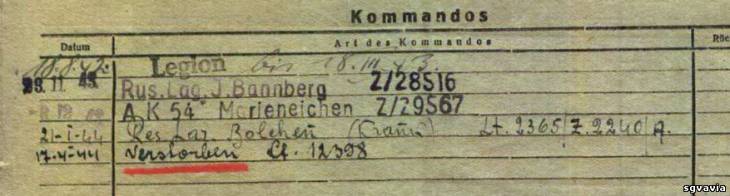 Kommandos
Datum Art des Kommandos Rüc
18.8.42. Legion bis 18.III.43.
29.11.43. Rus.Lag.J.Bannberg Z/28516
A K 54 Marieneichen Z/29567
21-I-44 Res Laz. Bolchen (Krank) Lt. 2365/Z.2240/A.
17.4.44 Verstorben Lt. 12398
sgvavia